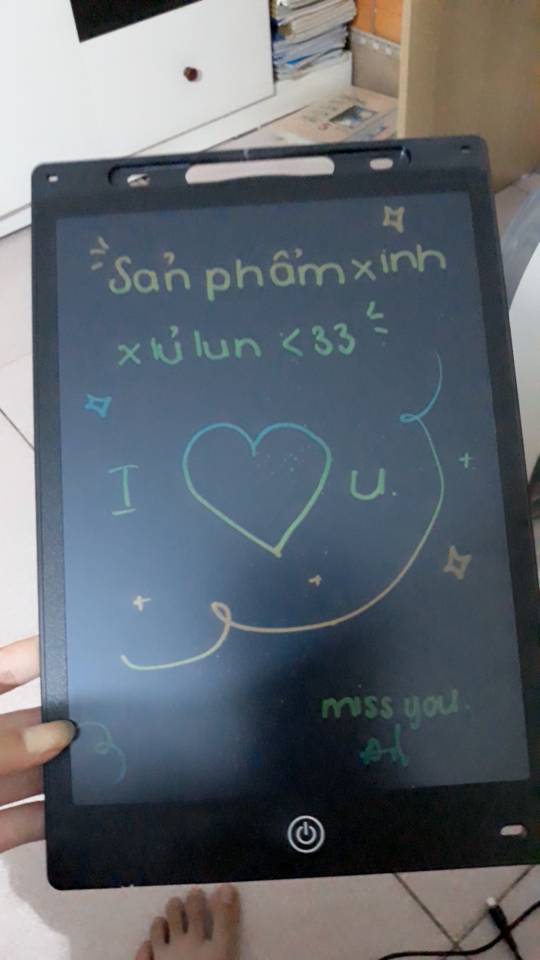 Sản phẩm xinh
xỉu lun <33
I ♡ u.
miss you.